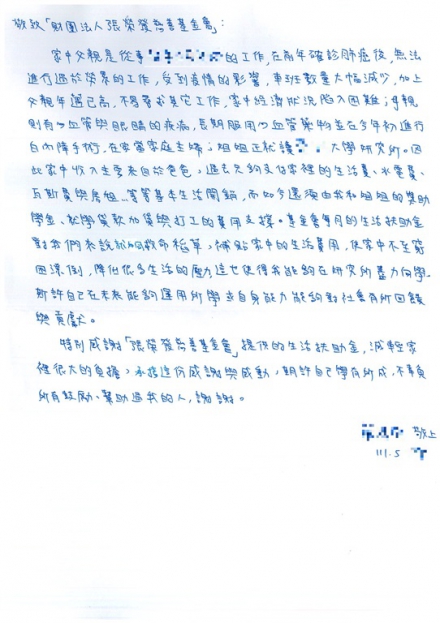 敬致「財團法人張榮發慈善基金會」:
家中父親是從事 的工作,在前年確診肺癌後,無法
進行過於勞累的工作,受到疫情的影響,車班數量大幅減少,加上
父親年邁已高,不易尋求其它工作,家中經濟狀況陷入困難;母親
則有心血管與眼睛的疾病,長期服用心血管藥物並在今年初進行
白內障手術,在家當家庭主婦;姐姐正就讀 大學研究所。因
此家中收入主要來自於爸爸,過去足夠支付家裡的生活費、水電費、
瓦斯費與房租...等等基本生活開銷,而如今還須由我和姐姐的獎助
學金、就學貸款加貸與打工的費用支撐。基金會每月的生活扶助金
對我們來說就如同救命稻草,補貼家中的生活費用,使家中不至窮
困潦倒,降低很多生活的壓力,這也使得我能夠在研究所盡力向學,
期許自己在未來能夠運用所學或自身能力能夠對社會有所回饋
與貢獻。
特別感謝「張榮發慈善基金會」提供的生活扶助金,減輕家
裡很大的負擔,永誌這份感謝與感動,期許自己學有所成,不辜負
所有鼓勵、幫助過我的人,謝謝。
敬上
111.5